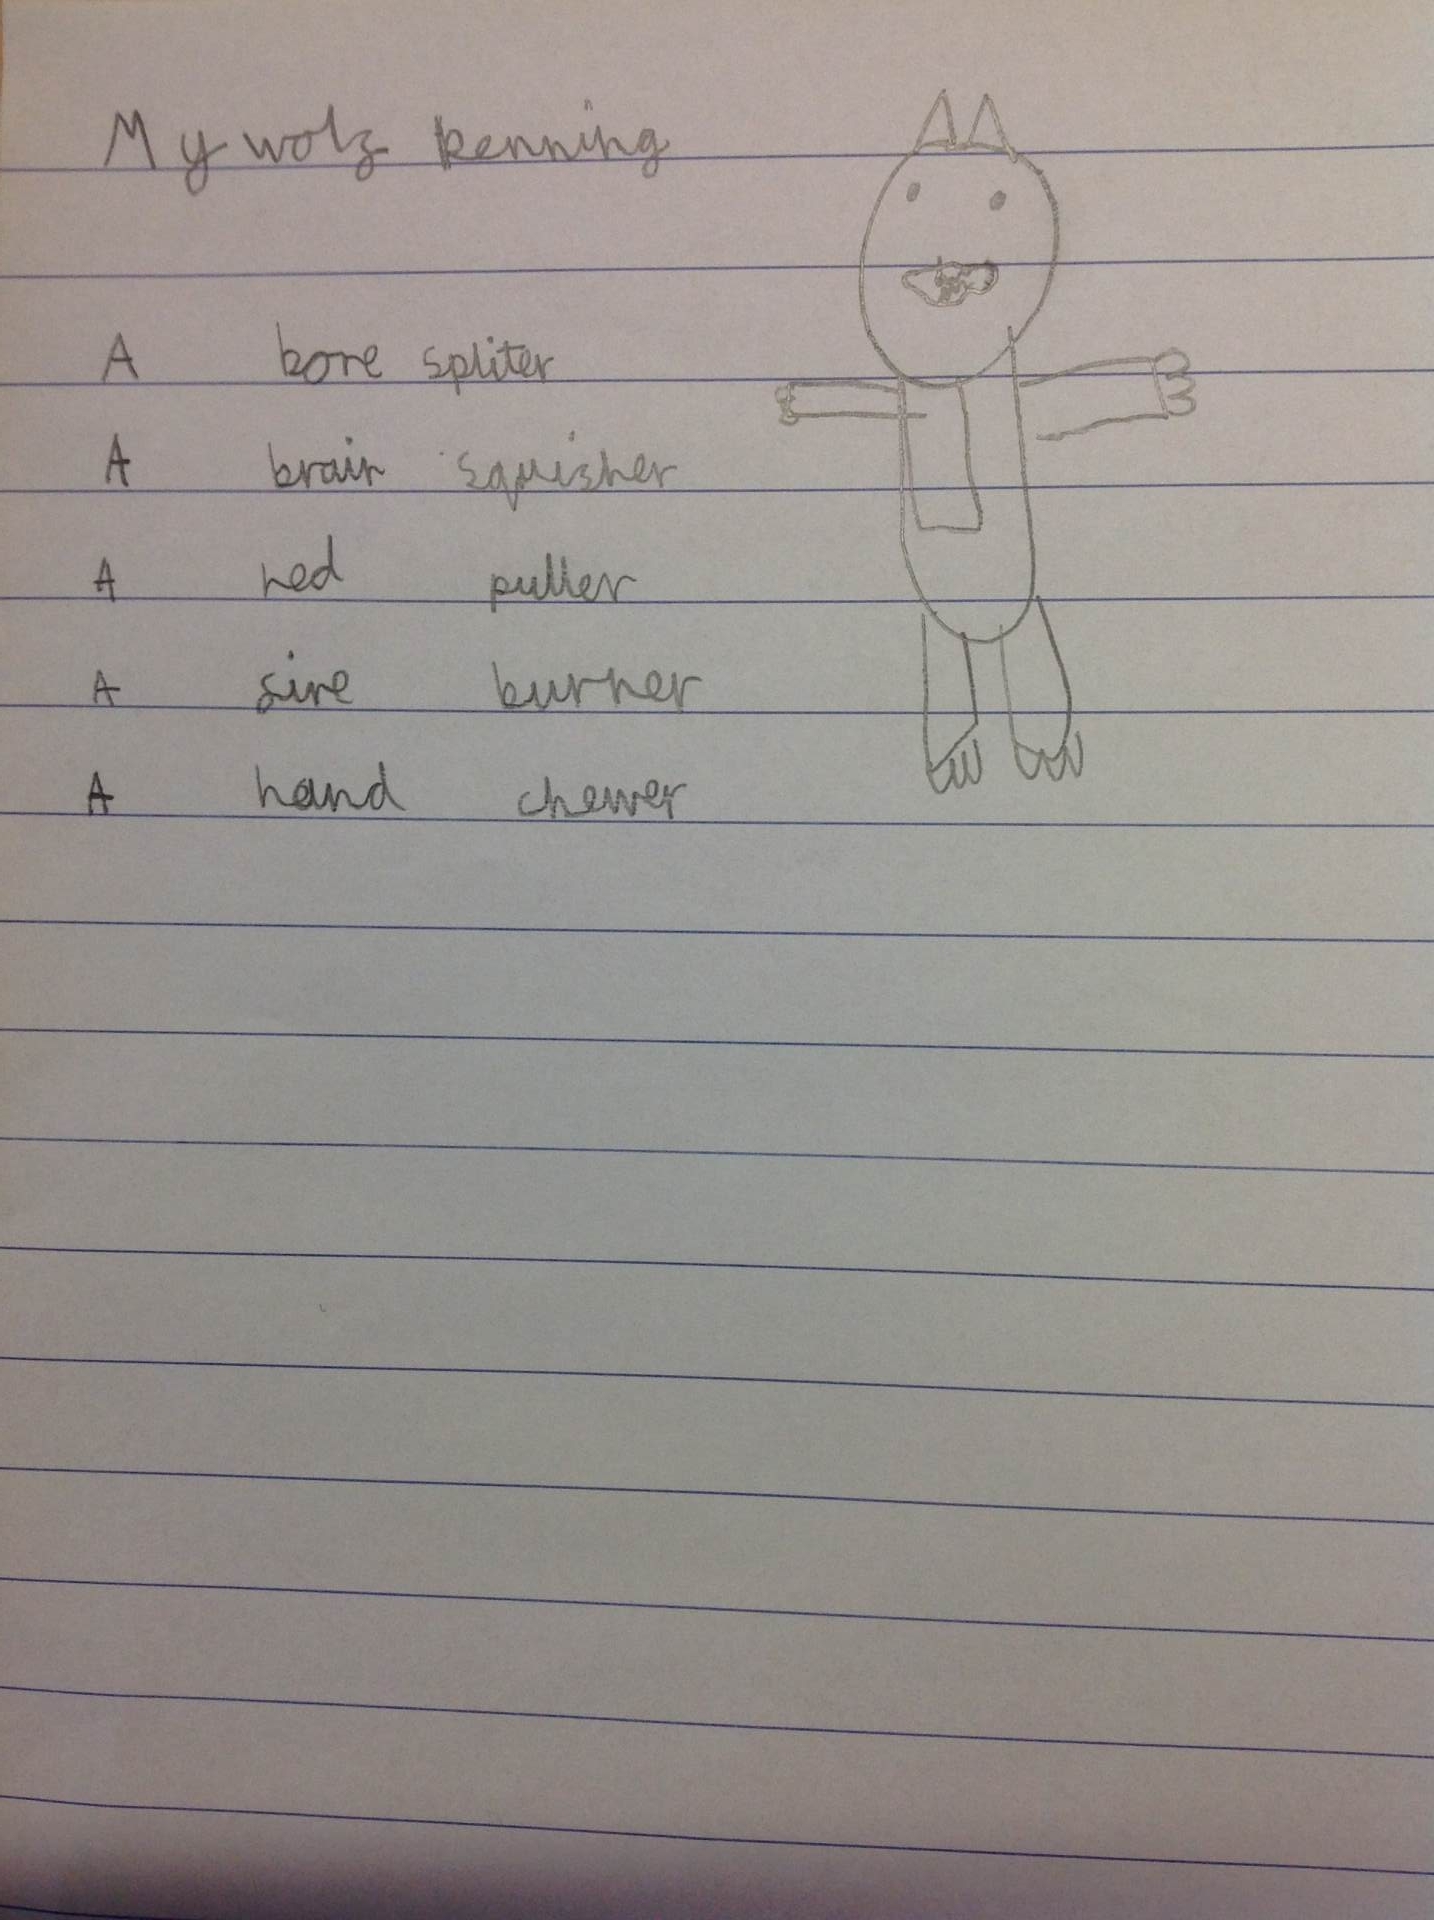 My wolf kenning
A bone spliter
A brain squisher
A hed puller
A fire burner
A hand chewer